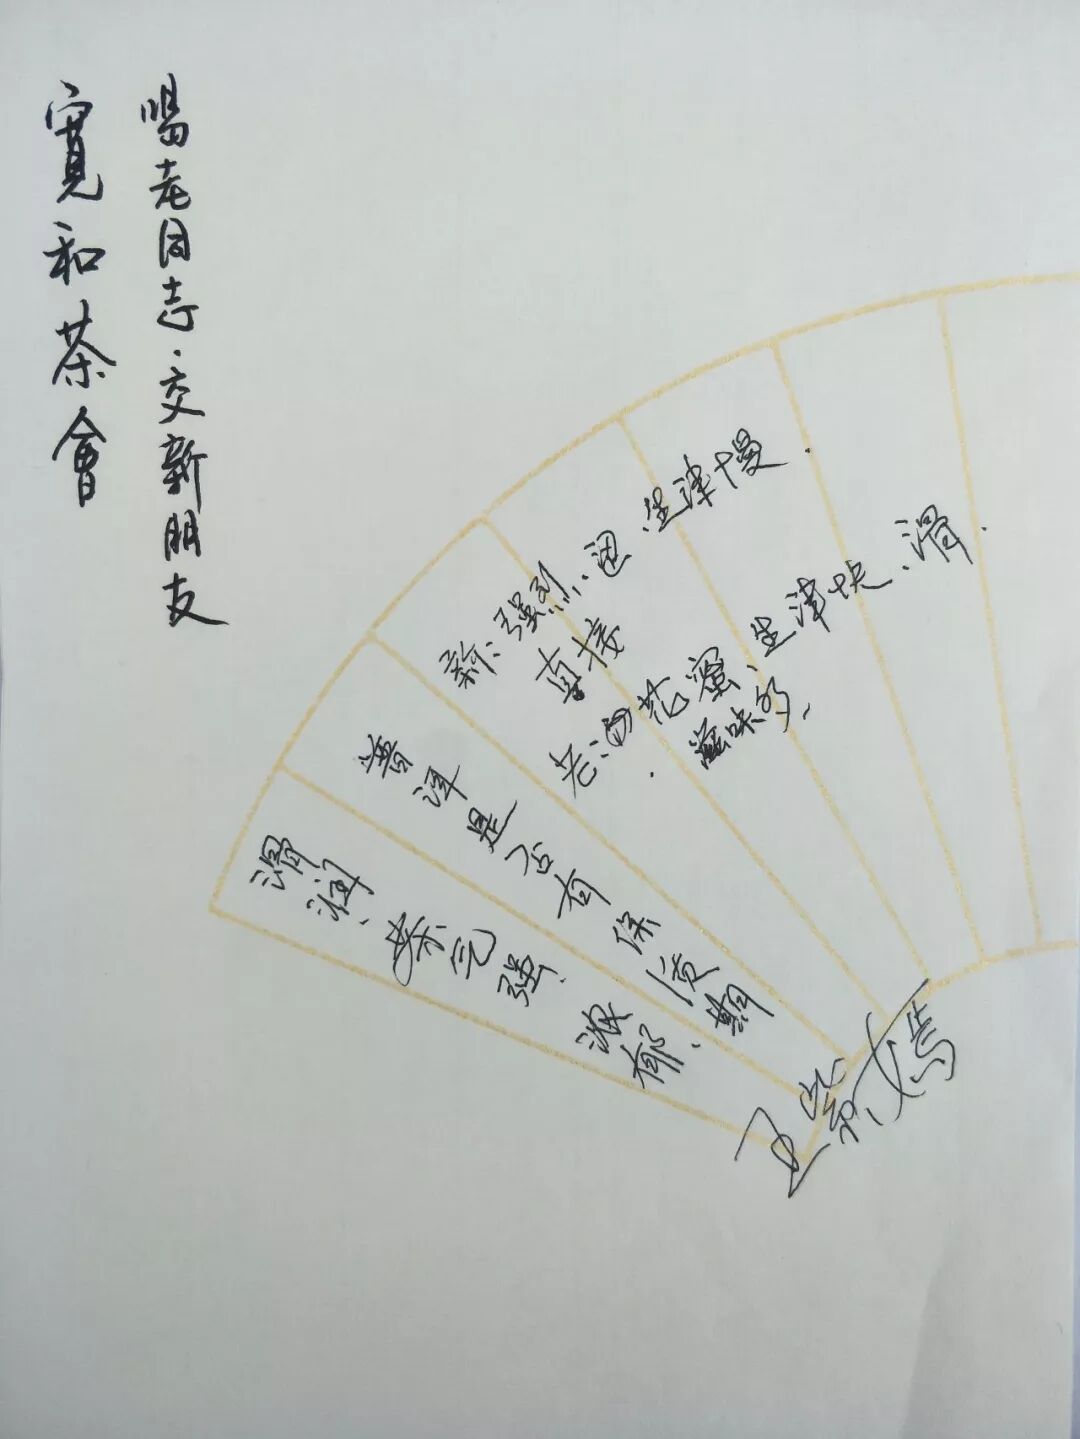 喝老同志·交新朋友
寬和茶會
新:强烈、迅、生津慢.
直接
老:西花蜜、生津快、滑.
滋味多、
普洱是否有保质期
滑润、茶气强、浓郁、
王紫嫣